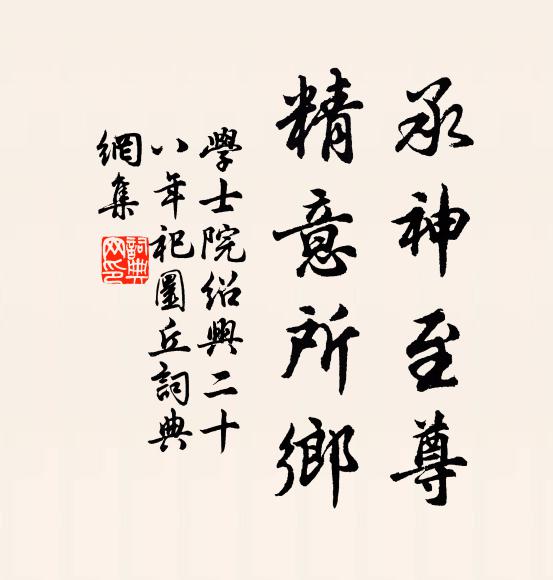 承神至尊
精意所鄉
學士院紹興二十
八年祀圜丘詞典
網集
詞典
網印